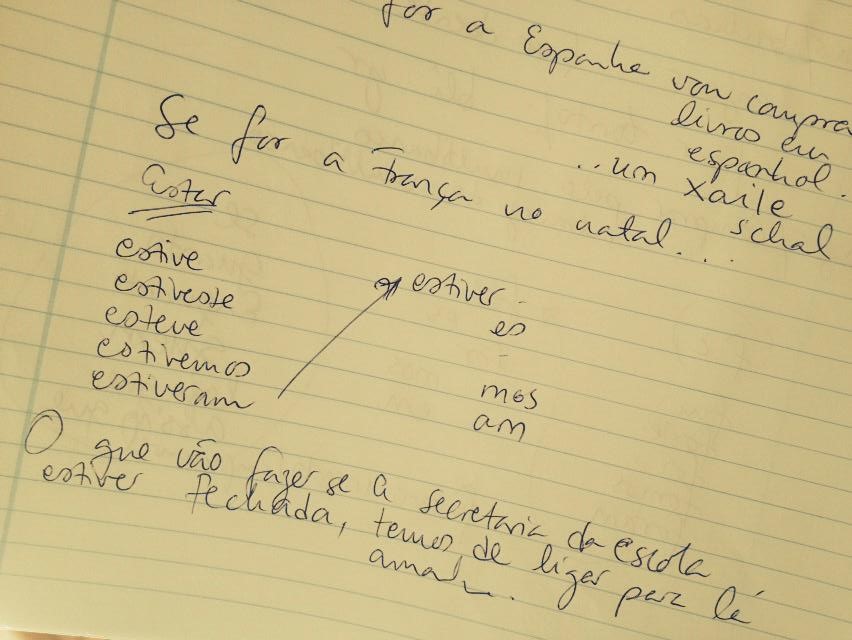 for a Espanha vou compra
livros em
espanhol.
Se for a França no natal...
...um xaile
schal
Estar
estive
estiveste
esteve
estivemos
estiveram
estiver -
es
-
mos
am
O que vão fazer se a secretaria da escola
estiver fechada, temos de ligar para lá